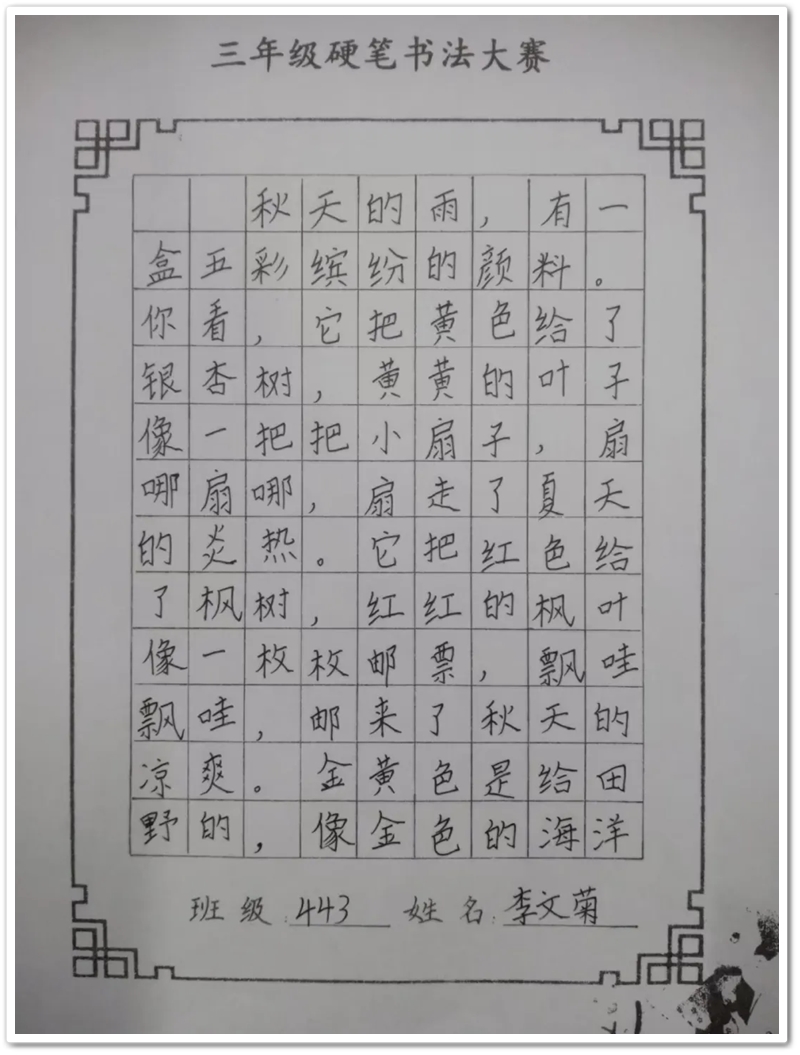 三年级硬笔书法大赛
秋天的雨，有一
盒五彩缤纷的颜料。
你看，它把黄色给了
银杏树，黄黄的叶子
像一把把小扇子，扇
哪扇哪，扇走了夏天
的炎热。它把红色给
了枫树，红红的枫叶
像一枚枚邮票，飘哇
飘哇，邮来了秋天的
凉爽。金黄色是给田
野的，像金色的海洋
班级：443 姓名：李文菊